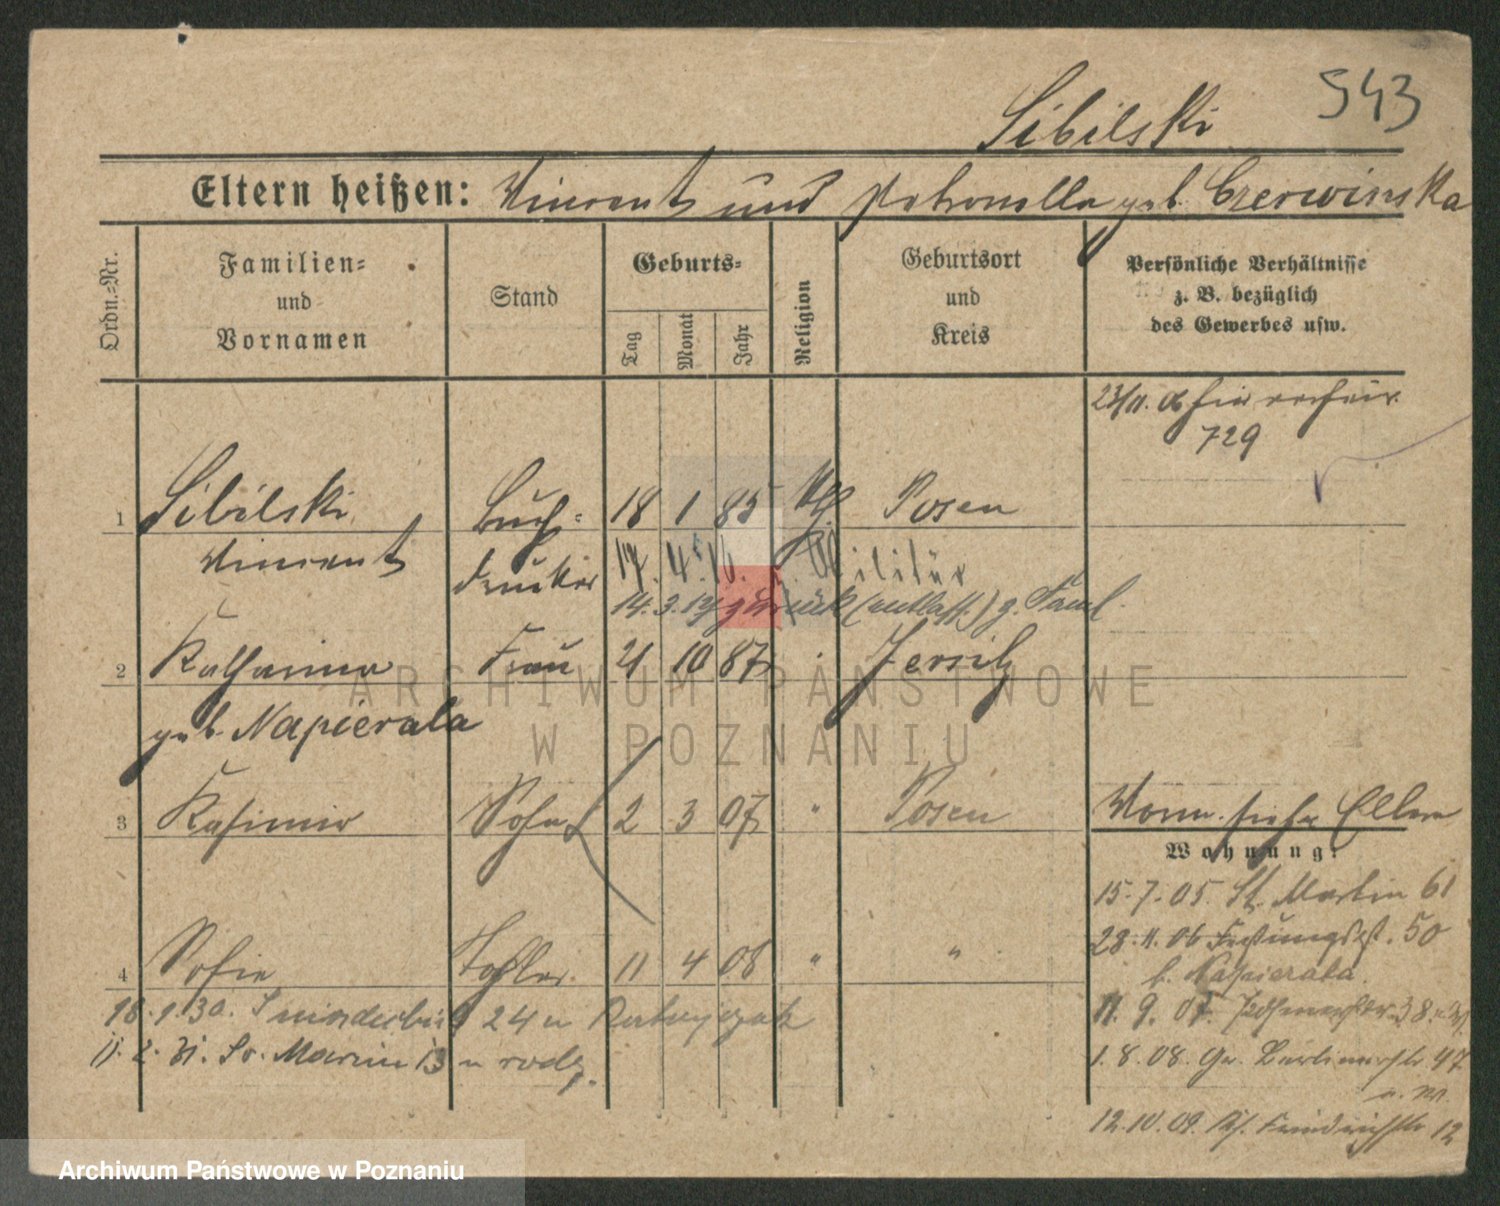 543
Sibilski
Eltern heißen: Vincent und Petronella geb. Czerwinska
Ordn.-Nr.
Familien- und Vornamen
Stand
Geburts-
Tag
Monat
Jahr
Religion
Geburtsort und Kreis
Persönliche Verhältnisse z. B. bezüglich des Gewerbes usw.
23/11. 06 hier
729
1 Sibilski Buch- 18 1 85 kth. Posen
Vincent drucker 17. 4. 16. z. Militär
14. 3. 17 zurück (entlass.) z. Faml.
2 Katharina Frau 21 10 87 " Jersitz
geb. Napierala
3 Kasimir Sohn 2 3 07 " Posen
Vorm. siehe Eltern
Wohnung:
4 Sofie Tochter 11 4 08 " "
15.7.05. St. Martin 61
28.11.06 Festungsst. 50
b. Napierala
11.9.07. 38
1.8.08. Gr. Berlinerstr 47
12.10.09. Kais. Friedrichstr 12
16.1.30. 24 u Ratajczak
11.2.31. Sw. Marcin 13 u rodz.
ARCHIWUM PAŃSTWOWE
W POZNANIU
Archiwum Państwowe w Poznaniu